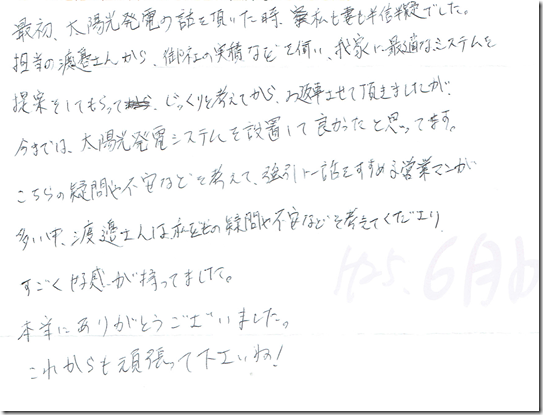 最初、太陽光発電の話を頂いた時、私も妻も半信半疑でした。
担当の渡邉さんから、御社の実績などを伺い、我家に最適なシステムを
提案をしてもらって、じっくりと考えてから、お返事させて頂きましたが、
今では、太陽光発電システムを設置して良かったと思ってます。
こちらの疑問や不安などを考えて、強引に話をすすめる営業マンが
多い中、渡邉さんは私達の疑問や不安などを考えてくださり、
すごく好感が持ってました。
本当にありがとうございました。
これからも頑張って下さいね!
H25. 6月